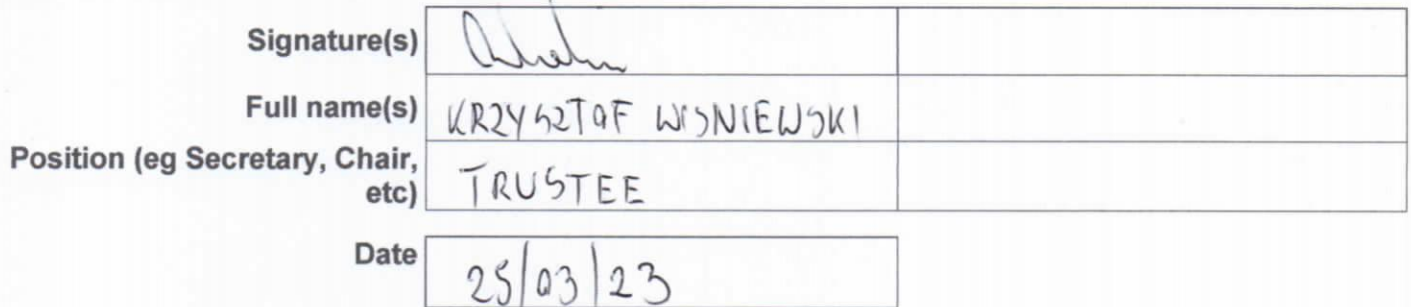 Signature(s)
Full name(s) KRZYSZTOF WISNIEWSKI
Position (eg Secretary, Chair,
etc) TRUSTEE
Date 25/03/23